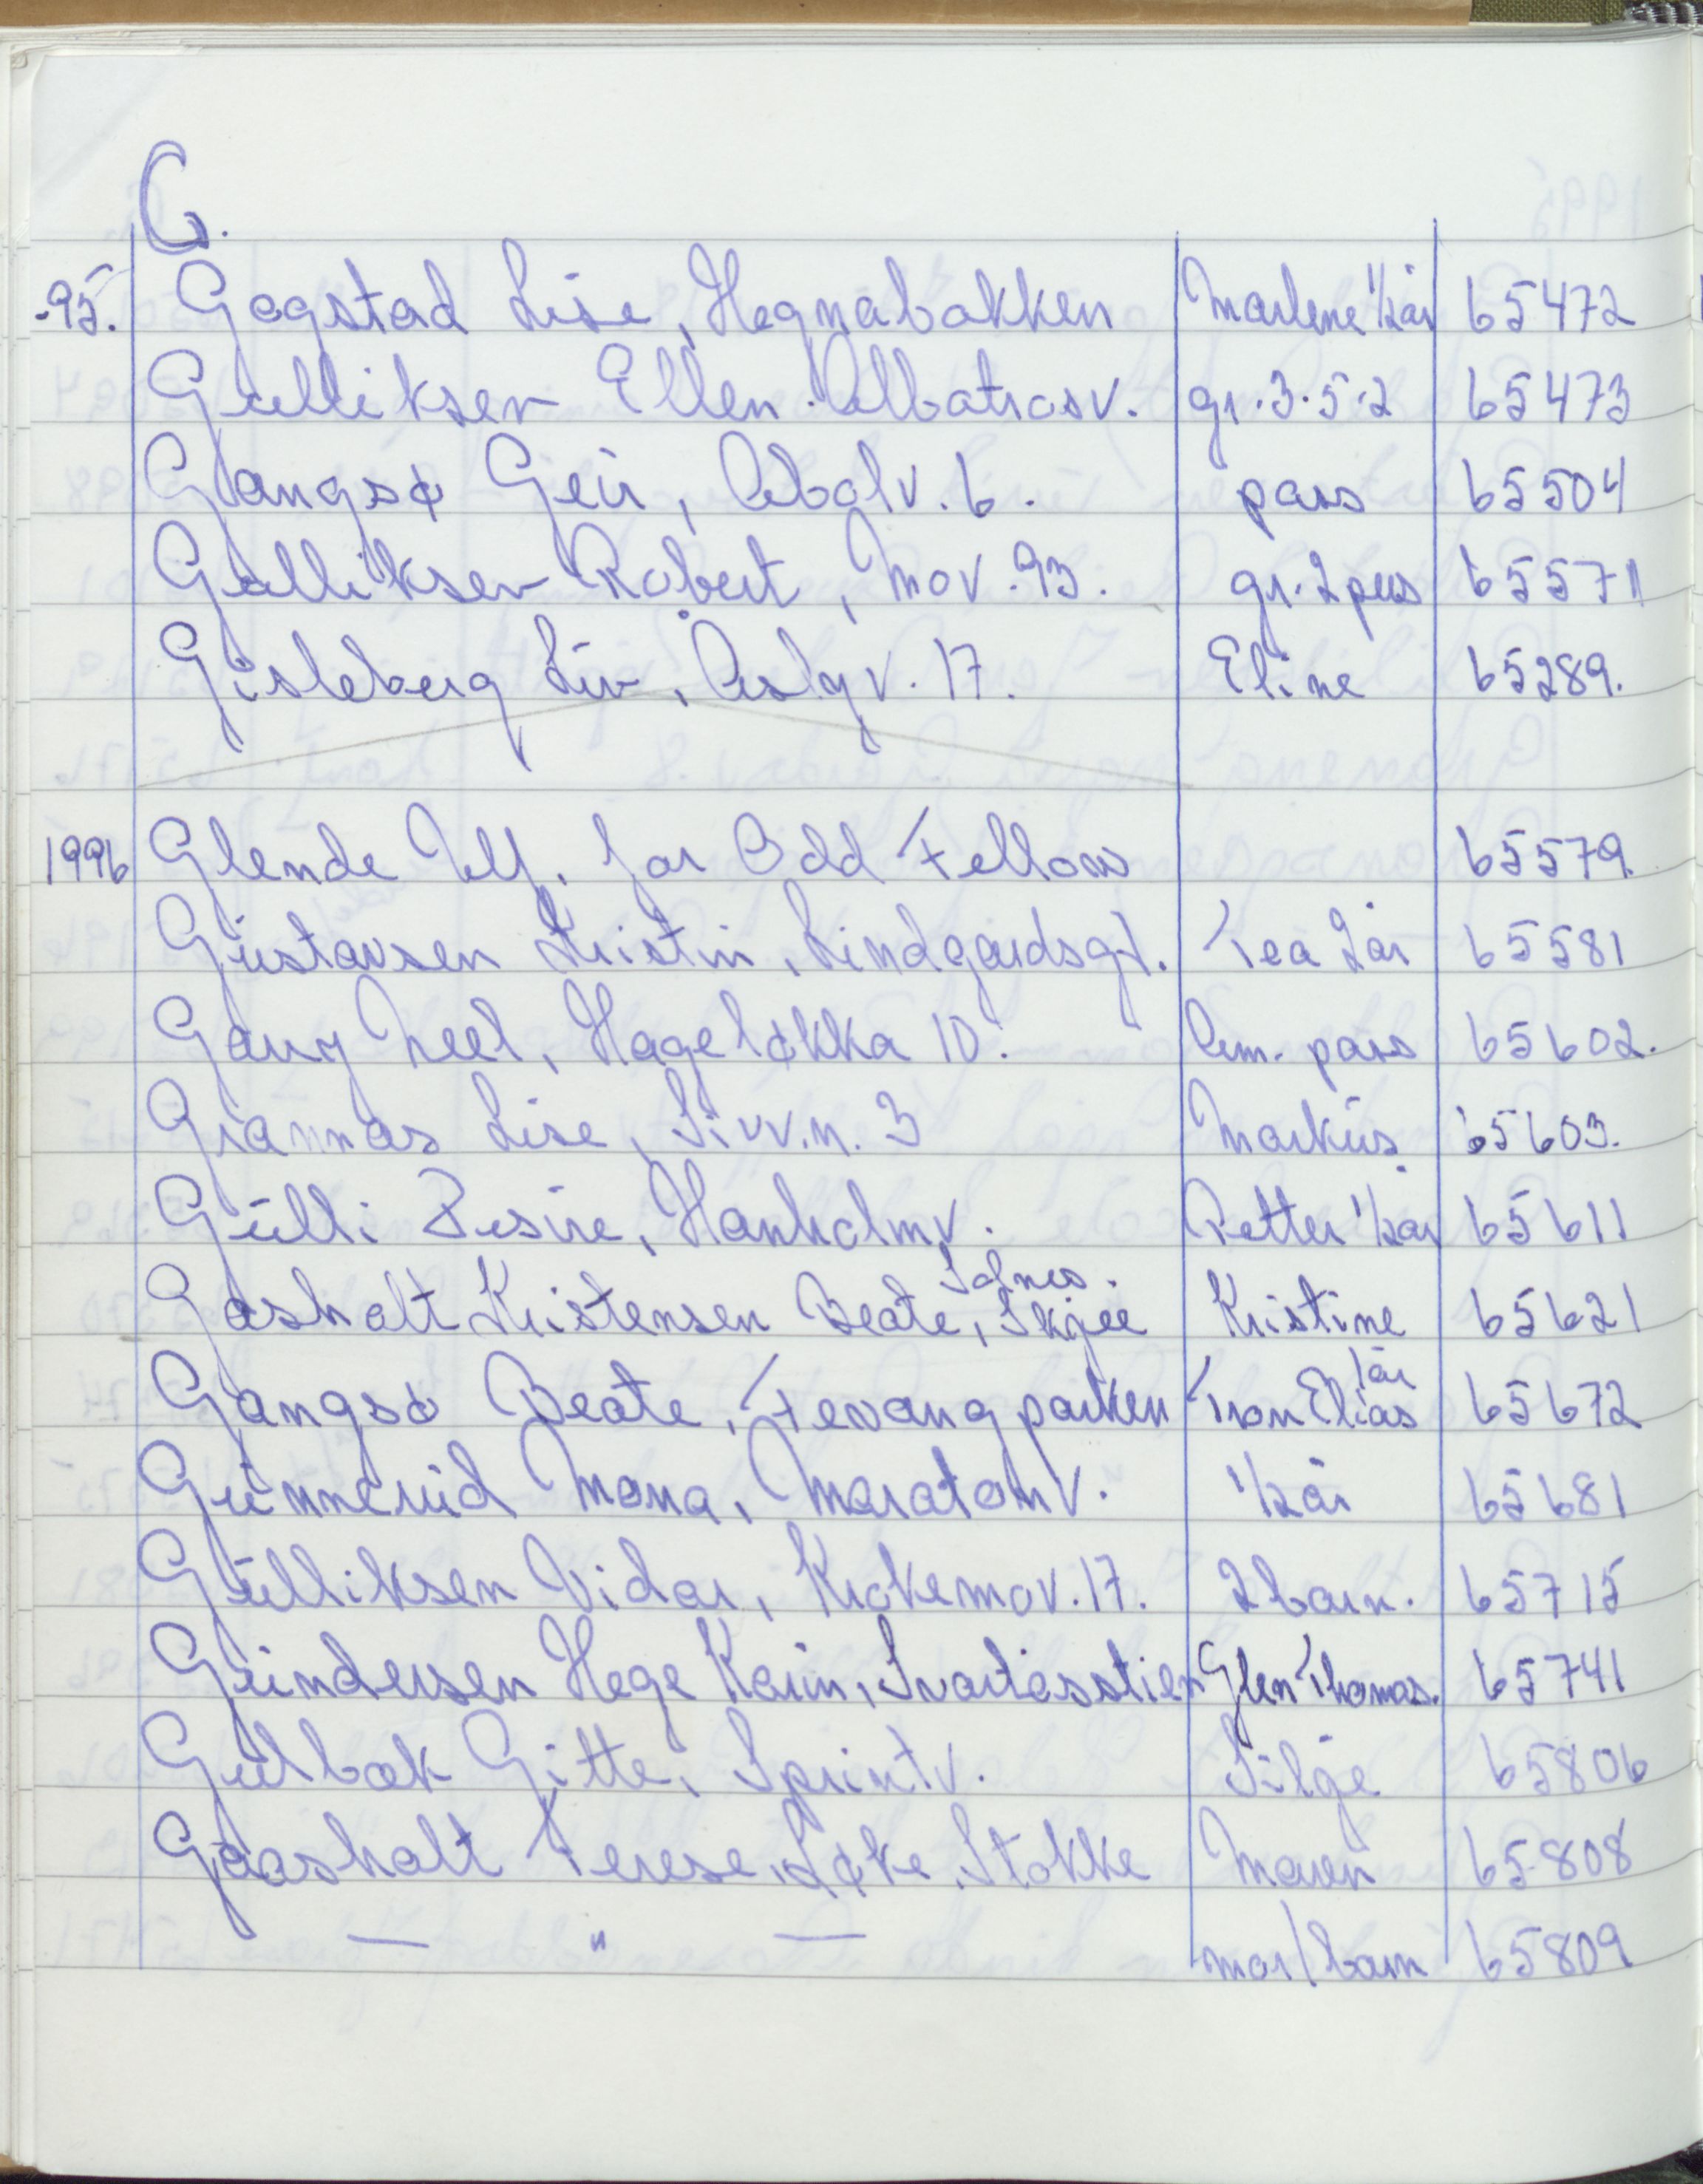 G.
-95. Gogstad Lise, Hegnabakken Marlene 1/2år 65472
Gulliksen Ellen. Albatrosv. gr. 3.5.2 65473
Gangsø Geir, Abolv. 6. pass 65504
Gulliksen Robert, Mov. 93. gr. 2 pers 65571
Gisleberg Liv, Aslyv. 17. Eline 65289.
1996 Glende Ulf. for Odd Fellow 65579.
Gustavsen Kristin, Lindgårdsgt. Tea 2år 65581
Gauy Neel, Hageløkka 10. Am. pass 65602.
Grannas Lise, Sivv.n. 3 Markus. 65603.
Gulli Desire, Hanholmv. Petter 1/2år 65611
Gåsholt Kristensen Beate, Skjee Kristine 65621
Gangsø Beate, Fevangparken Tron Elias 1år 65672
Gunnerud Mona, Maratonv. 1/2år 65681
Gulliksen Vidar, Krokemov. 17. 2 barn. 65715
Gundersen Hege Karin, Svartåsstien Glen Thomas. 65741
Gulbok Gitte, Sprintv. Silje 65806
Gåasholt Terese, Løke, Stokke Maren 65808
— " — mor/barn 65809